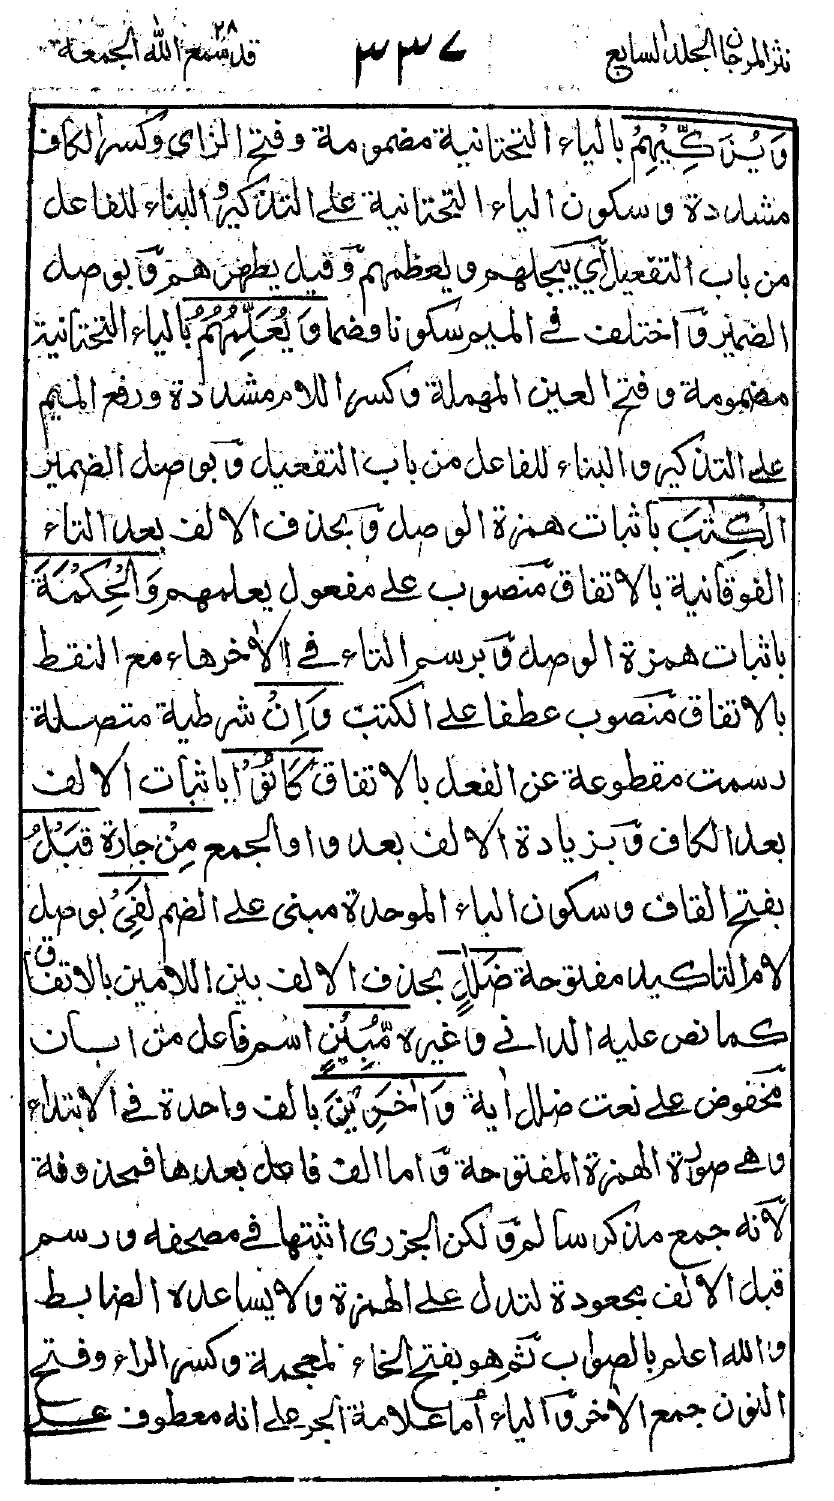 نثر المرجان الجلد السابع
٣٣٧
قد سمع الله ٢٨ الجمعة
وَيُزَكِّيهِمُ بالياء التحتانية مضمومة وفتح الزاي وكسر الكاف
مشددة وسكون الياء التحتانية على التذكير والبناء للفاعل
من باب التفعيل أي يبجلهم ويعظمهم وقيل يطهرهم وبوصل
الضمير واختلف في الميم سكونا وضما وَيُعَلِّمُهُمُ بالياء التحتانية
مضمومة وفتح العين المهملة وكسر اللام مشددة ورفع الميم
على التذكير والبناء للفاعل من باب التفعيل وبوصل الضمير
الْكِتٰبَ باثبات همزة الوصل وبحذف الالف بعد التاء
الفوقانية بالاتفاق منصوب على مفعول يعلمهم وَالْحِكْمَةَ
باثبات همزة الوصل وبرسم التاء في الاٰخر هاء مع النقط
بالاتفاق منصوب عطفا على الكتٰب وَاِنْ شرطية متصلة
رسمت مقطوعة عن الفعل بالاتفاق كَانُوْا باثبات الالف
بعد الكاف وبزيادة الالف بعد واو الجمع مِنْ جارة قَبْلُ
بفتح القاف وسكون الباء الموحدة مبنى على الضم لَفِيْ بوصل
لام التاكيد مفتوحة ضَلٰلٍ بحذف الالف بين اللامين بالاتفاق
كما نص عليه الداني وغيره مُّبِيْنٍ اسم فاعل من ابان
مخفوض على نعت ضلل اٰية وَاٰخَرِيْنَ بالف واحدة في الابتداء
وهي صورة الهمزة المفتوحة واما الف فاعل بعدها فمحذوفة
لانه جمع مذكر سالم ولكن الجزرى اثبتها في مصحفه ورسم
قبل الالف مجعودة لتدل على الهمزة ولا يساعده الضابط
والله اعلم بالصواب ثم هو بفتح الخاء المعجمة وكسر الراء وفتح
النون جمع الاٰخر والياء اما علامة الجر على انه معطوف على